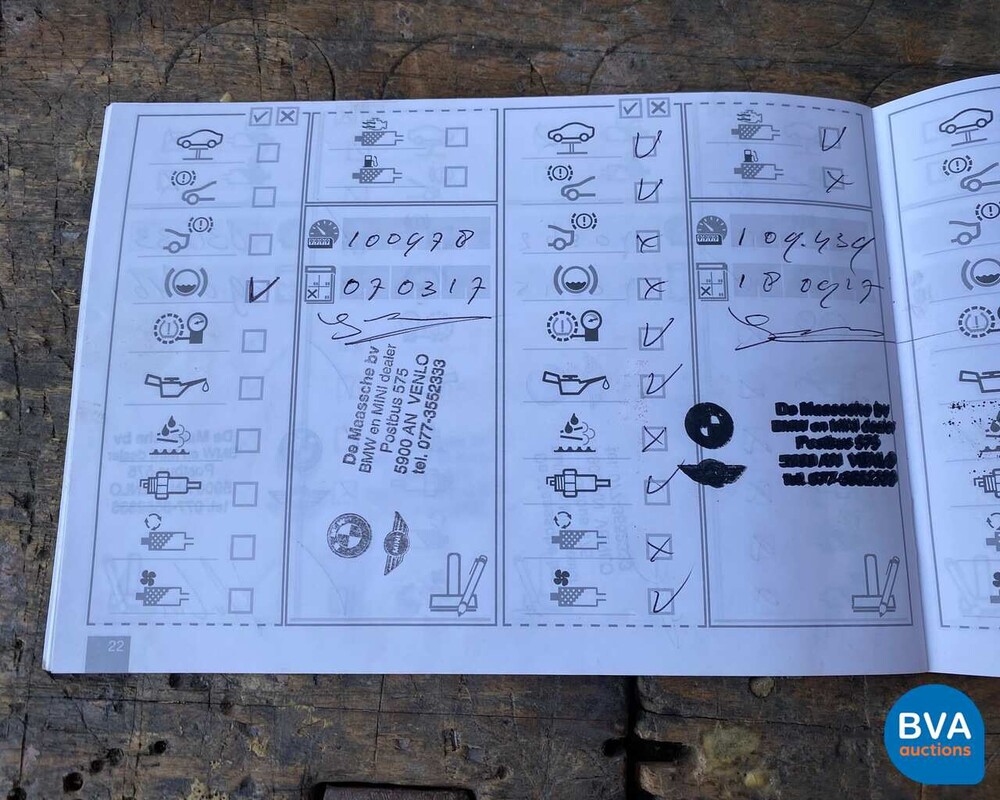 100978
070317
De Maassche bv
BMW en MINI dealer
Postbus 575
5900 AN VENLO
tel. 077-3552333
MINI
109.439
18 09 17
De Maassche bv
BMW en MINI dealer
Postbus 575
5900 AN VENLO
22
BVA
auctions